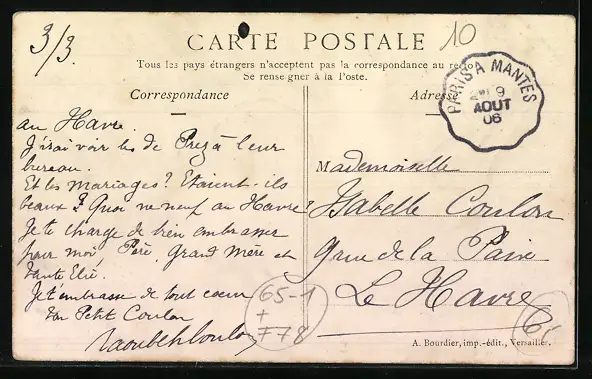 3/3.
10
CARTE POSTALE
Tous les pays étrangers n'acceptent pas la correspondance au recto
Se renseigner à la Poste.
Correspondance
Adresse
PARIS A MANTES
9
AOUT
06
au Havre.
J'irai voir les de Prez à leur
bureau.
Et les mariages? Etaient-ils
beaux? Quoi de neuf au Havre?
Je te charge de bien embrasser
pour moi, Père, Grand Mère et
Tante Elie.
Je t'embrasse de tout coeur
ton Petit Coulon
Mademoiselle
Isabelle Coulon
9 rue de la Paix
Le Havre
65-1
+
F78
A. Bourdier, imp.-édit., Versailles.